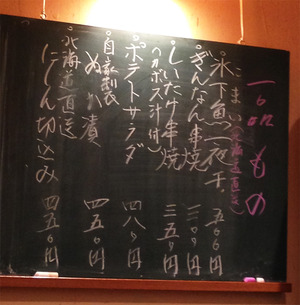 一品もの
こまい(北海道直送)
。氷下魚一夜干 五00円
。ぎんなん串焼 三00円
。しいたけ串焼 三五0円
(カボス汁付)
。ポテトサラダ 四八0円
。自家製
ぬか漬 四五0円
。北海道直送
にしん切込み 四五0円